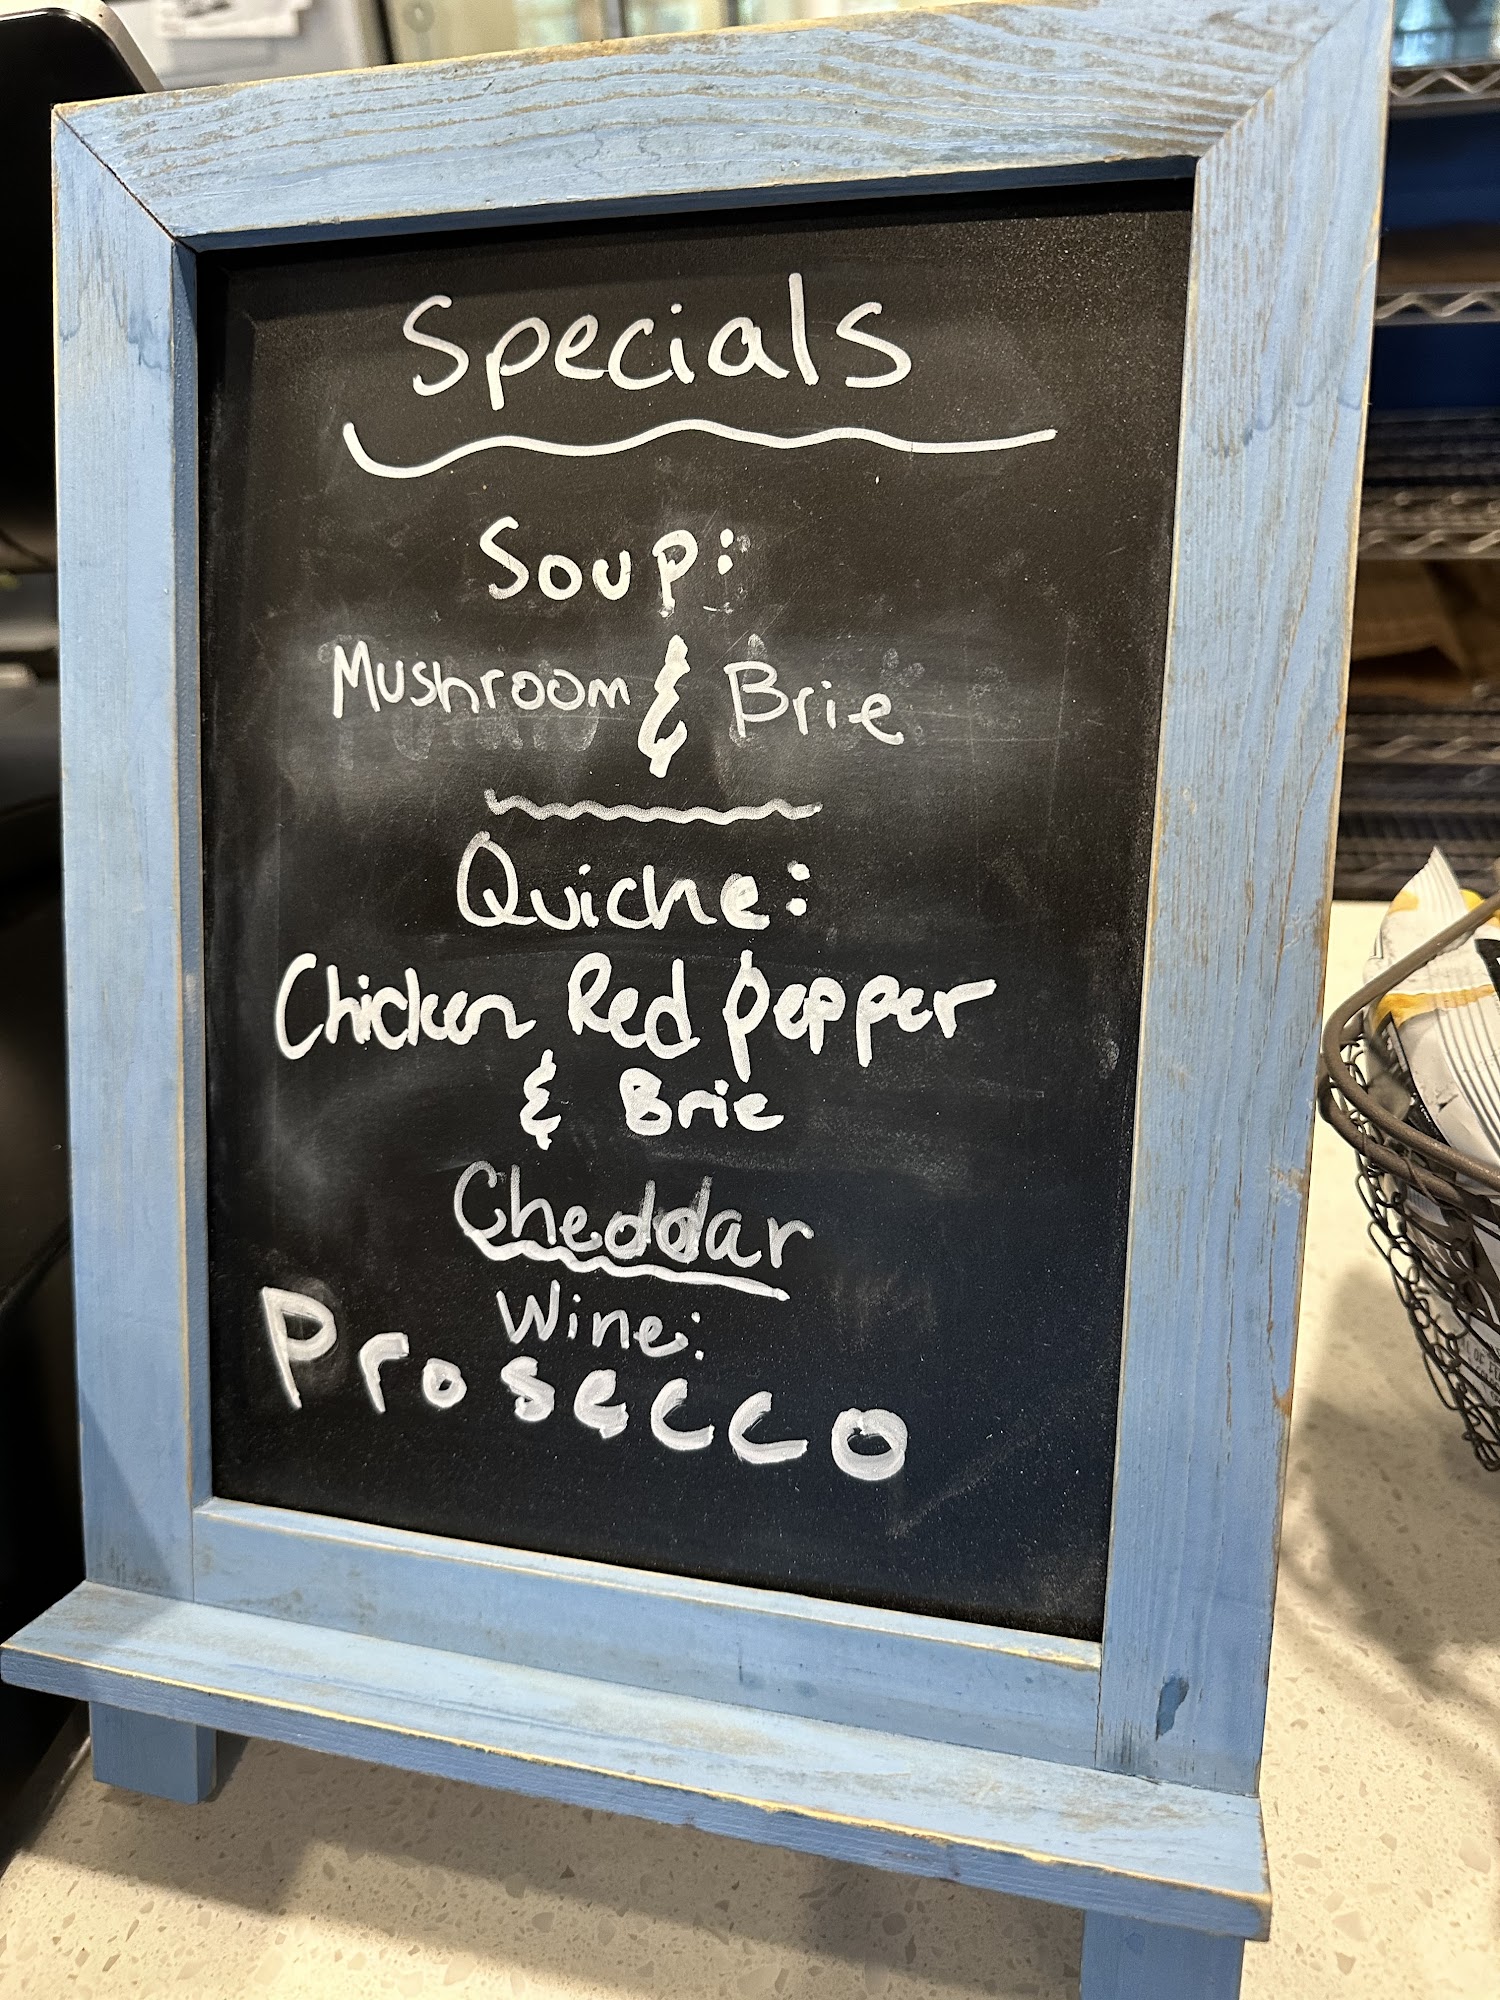 Specials
Soup:
Mushroom & Brie
Quiche:
Chicken Red Pepper
& Brie
Cheddar
Wine:
Prosecco